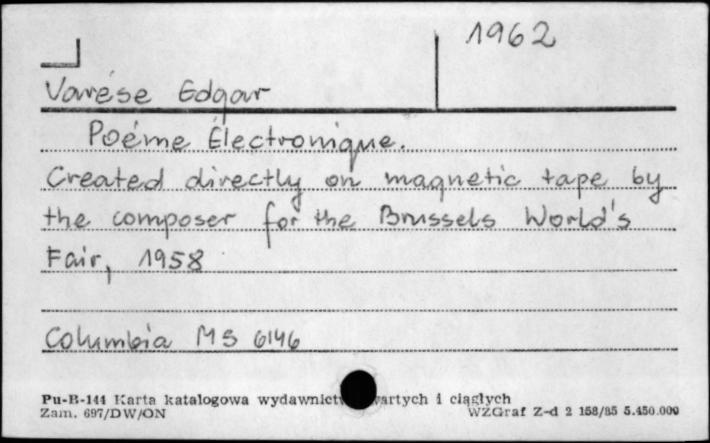 1962
Varése Edgar
Poéme Électronique.
Created directly on magnetic tape by
the composer for the Brussels World's
Fair, 1958
Columbia MS 6146
Pu-B-144 Karta katalogowa wydawnict wartych i ciągłych
Zam. 697/DW/ON WZGraf Z-d 2 158/85 5.450.000